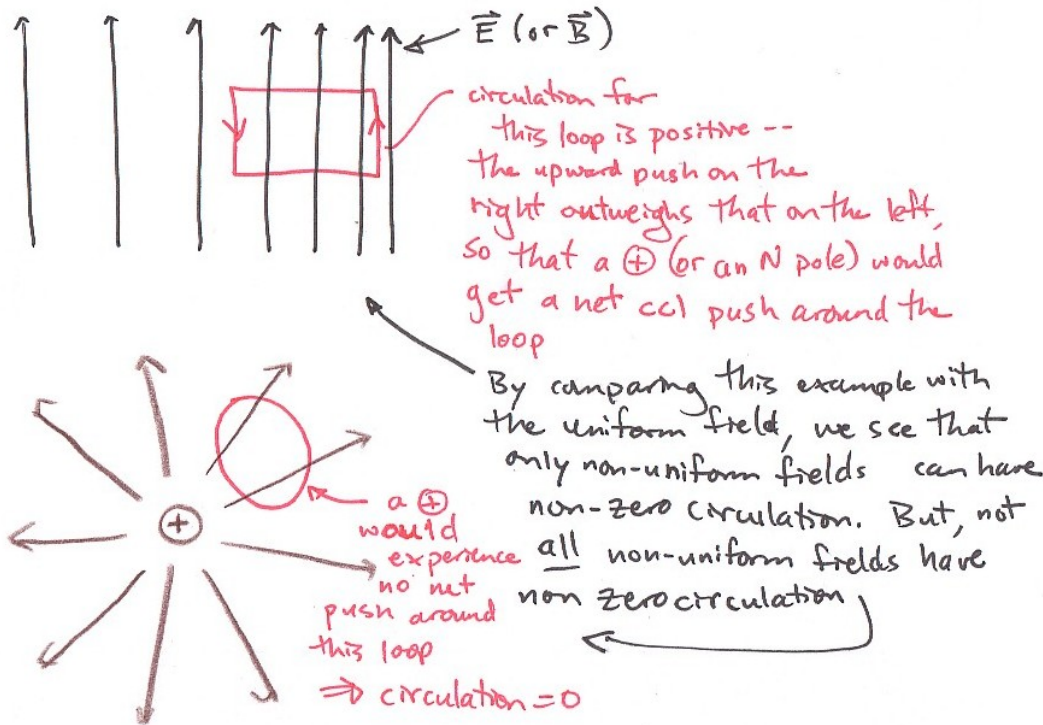 E (or B)
circulation for
this loop is positive --
the upward push on the
right outweighs that on the left,
so that a ⊕ (or an N pole) would
get a net ccl push around the
loop
By comparing this example with
the uniform field, we see that
only non-uniform fields can have
non-zero circulation. But, not
all non-uniform fields have
non zero circulation
+
a ⊕
would
experience
no net
push around
this loop
⇒ circulation = 0